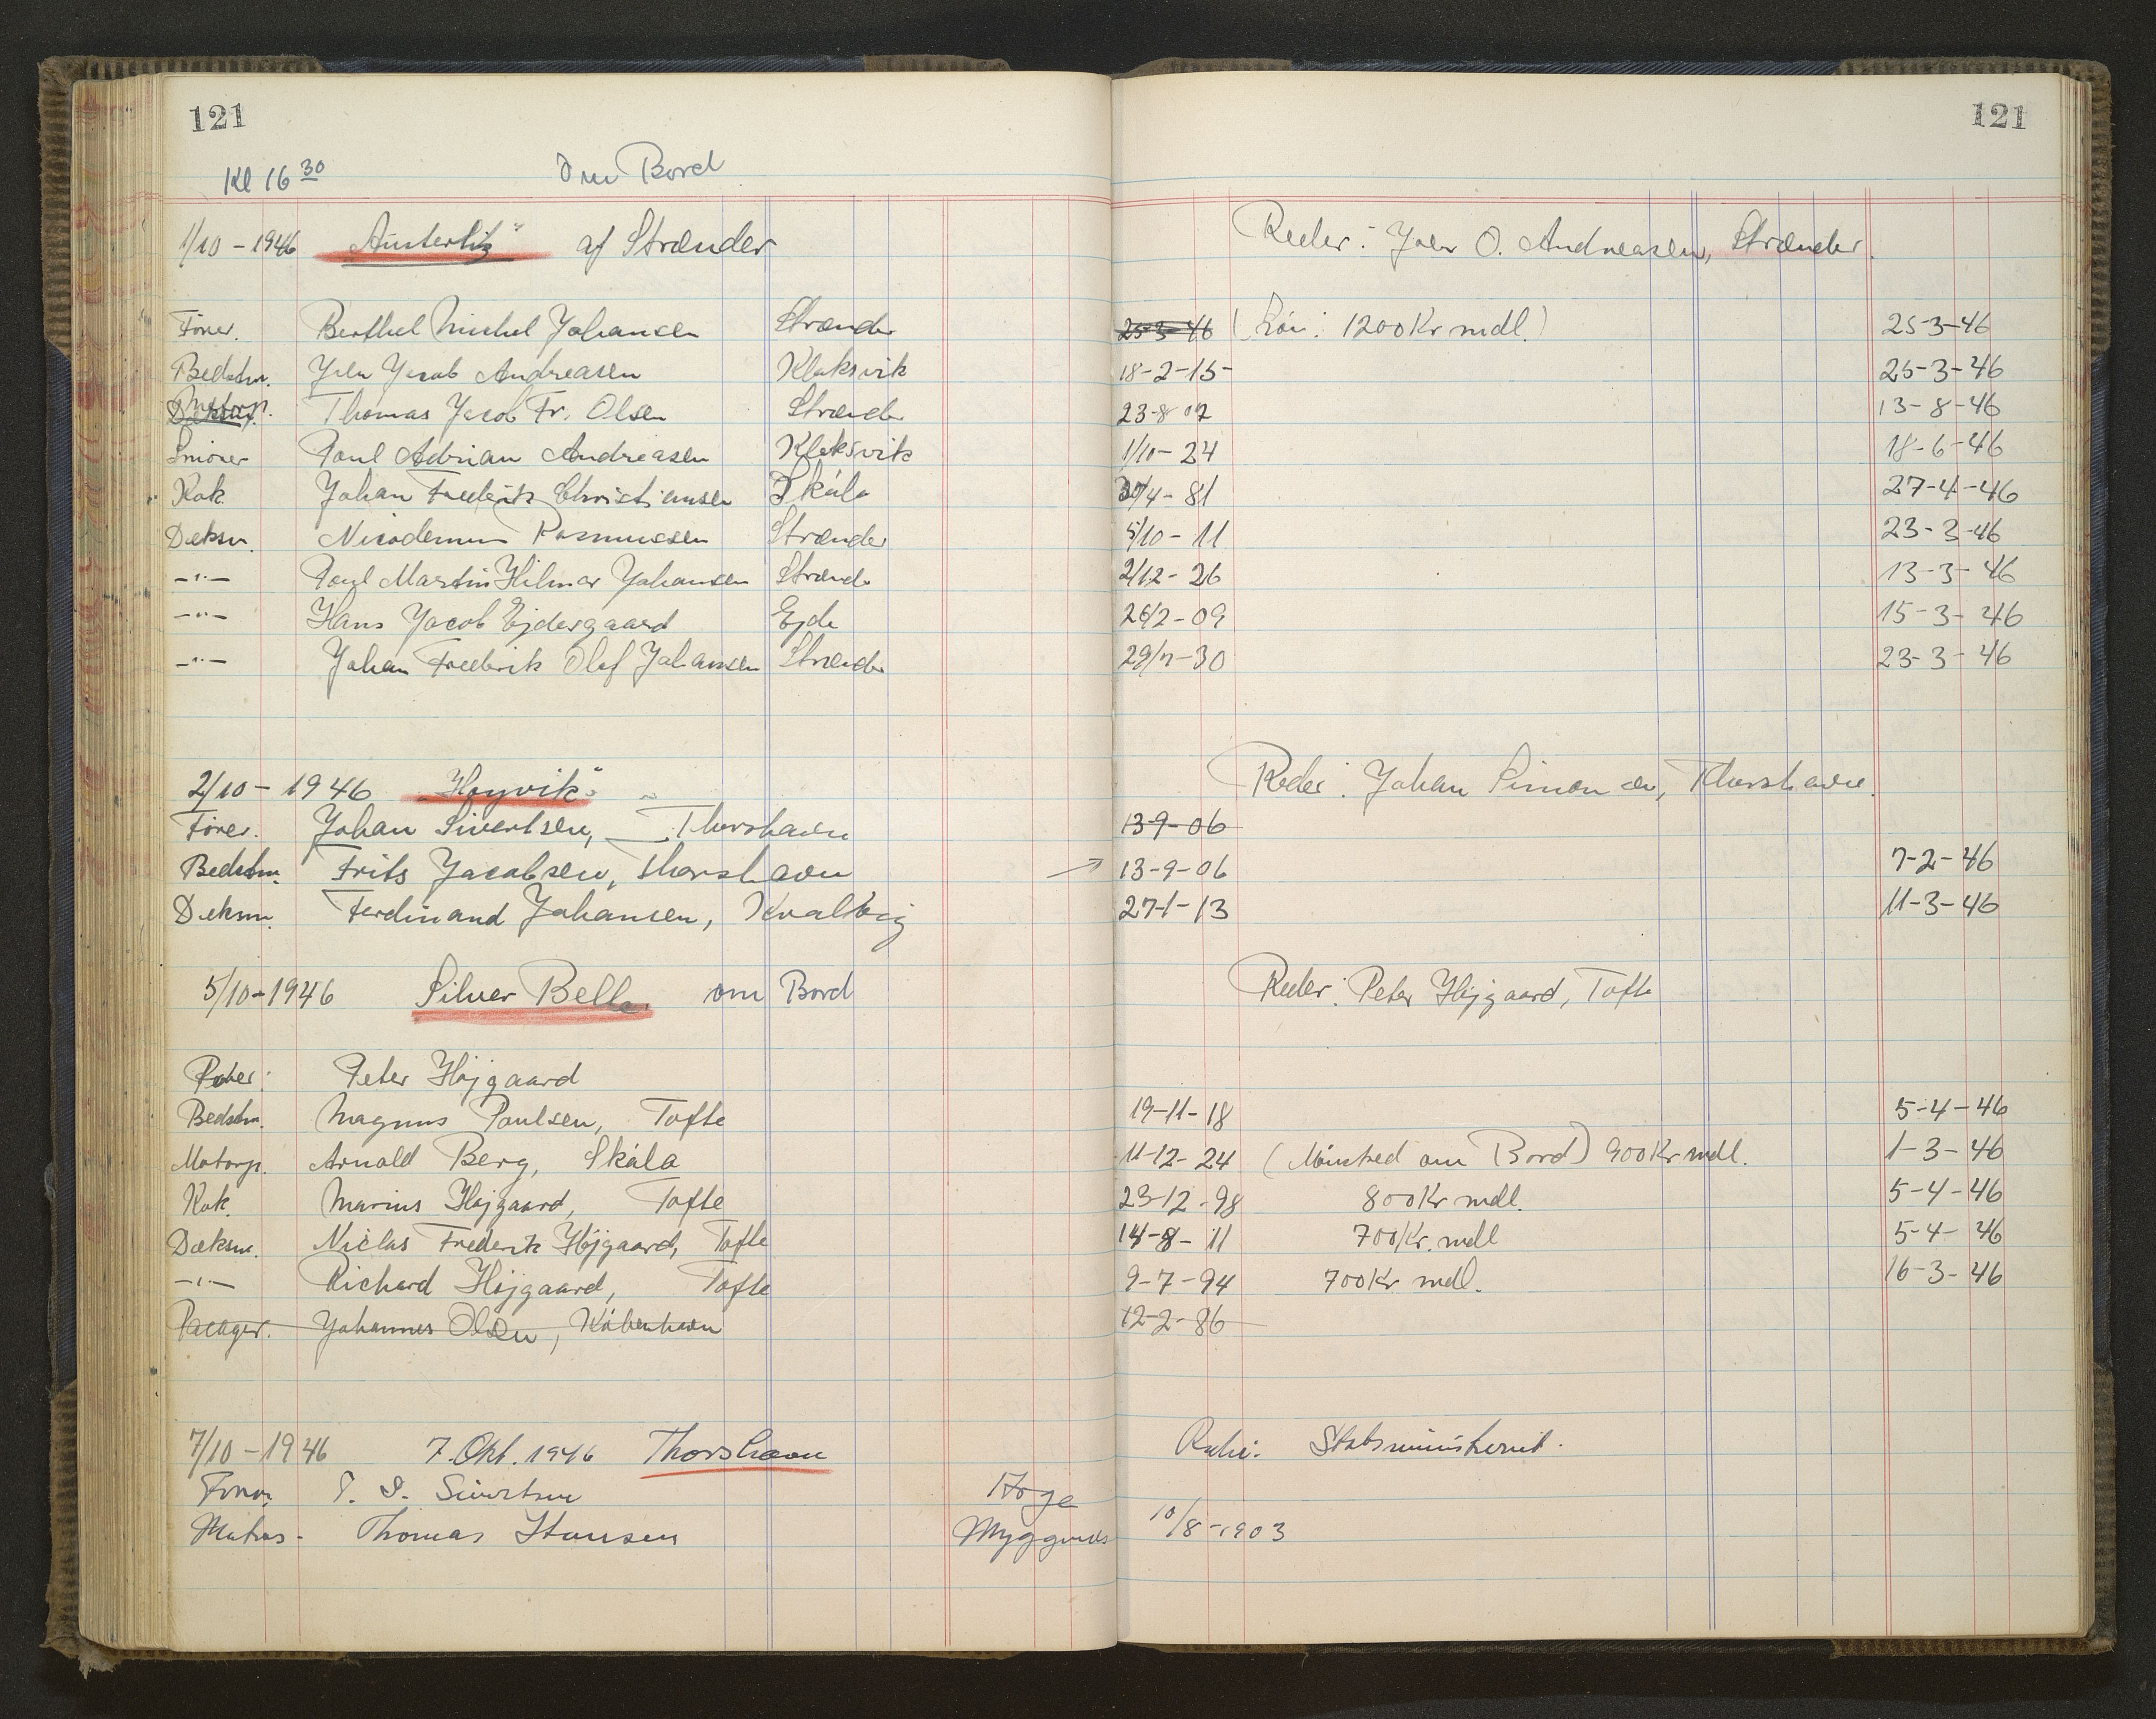 121 121
Kl 16 30 Om Bord
1/10 - 1946 "Austerlitz" af Strænder Reder: Joen O. Andreasen, Strænder.
Fører. Berthel Michel Johansen Strænder 25-3-46 (Hön: 1200 Kr mdl.) 25-3-46
Bedstm. Joen Jacob Andreasen Klaksvik 18-2-15- 25-3-46
Motorp. Thomas Jacob Fr. Olsen Strænder 23-8-07 13-8-46
Smörer Poul Adrian Andreasen Klaksvik 1/10-24 18-6-46
Kok. Johan Frederik Christiansen Skála /4-81 27-4-46
Dæksm. Nicodemus Rasmussen Strænder 5/10-11 23-3-46
-"- Poul Martin Hilmar Johansen Strænde 2/12-26 13-3-46
-"- Hans Jacob Ejdesgaard Ejde 26/2-09 15-3-46
-"- Johan Frederik Olaf Johansen Strænder 29/7-30 23-3-46
2/10 - 1946 "Hoyvik" Reder: Johan Simonsen, Thorshavn.
Fører. Johan Sivertsen, Thorshavn 13-9-06
Bedstm. Frits Jacobsen, Thorshavn 13-9-06 7-2-46
Dæksm. Ferdinand Johansen, Kvalvig 27-1-13 11-3-46
5/10-1946 Silver Bella. om Bord Reder: Peter Højgaard, Tofte
Fører: Peter Højgaard
Bedstm. Magnus Poulsen, Tofte 19-11-18 5-4-46
Motorp. Arnold Berg, Skála 11-12-24 (Mönstred om Bord) 900 Kr mdl. 1-3-46
Kok. Marius Højgaard, Tofte 23-12-98 800 Kr mdl. 5-4-46
Dæksm. Niclas Frederik Højgaard, Tofte 14-8-11 700 Kr. mdl 5-4-46
-"- Richard Højgaard, Tofte 9-7-94 700 Kr mdl. 16-3-46
Pasager. Johannes Olsen, København 12-2-86
7/10 - 1946 7. Okt. 1946 Thorshavn Reder: Statsministeriet.
Fører. Sivertsen
Matros. Thomas Hansen Myggenæs 10/8-1903